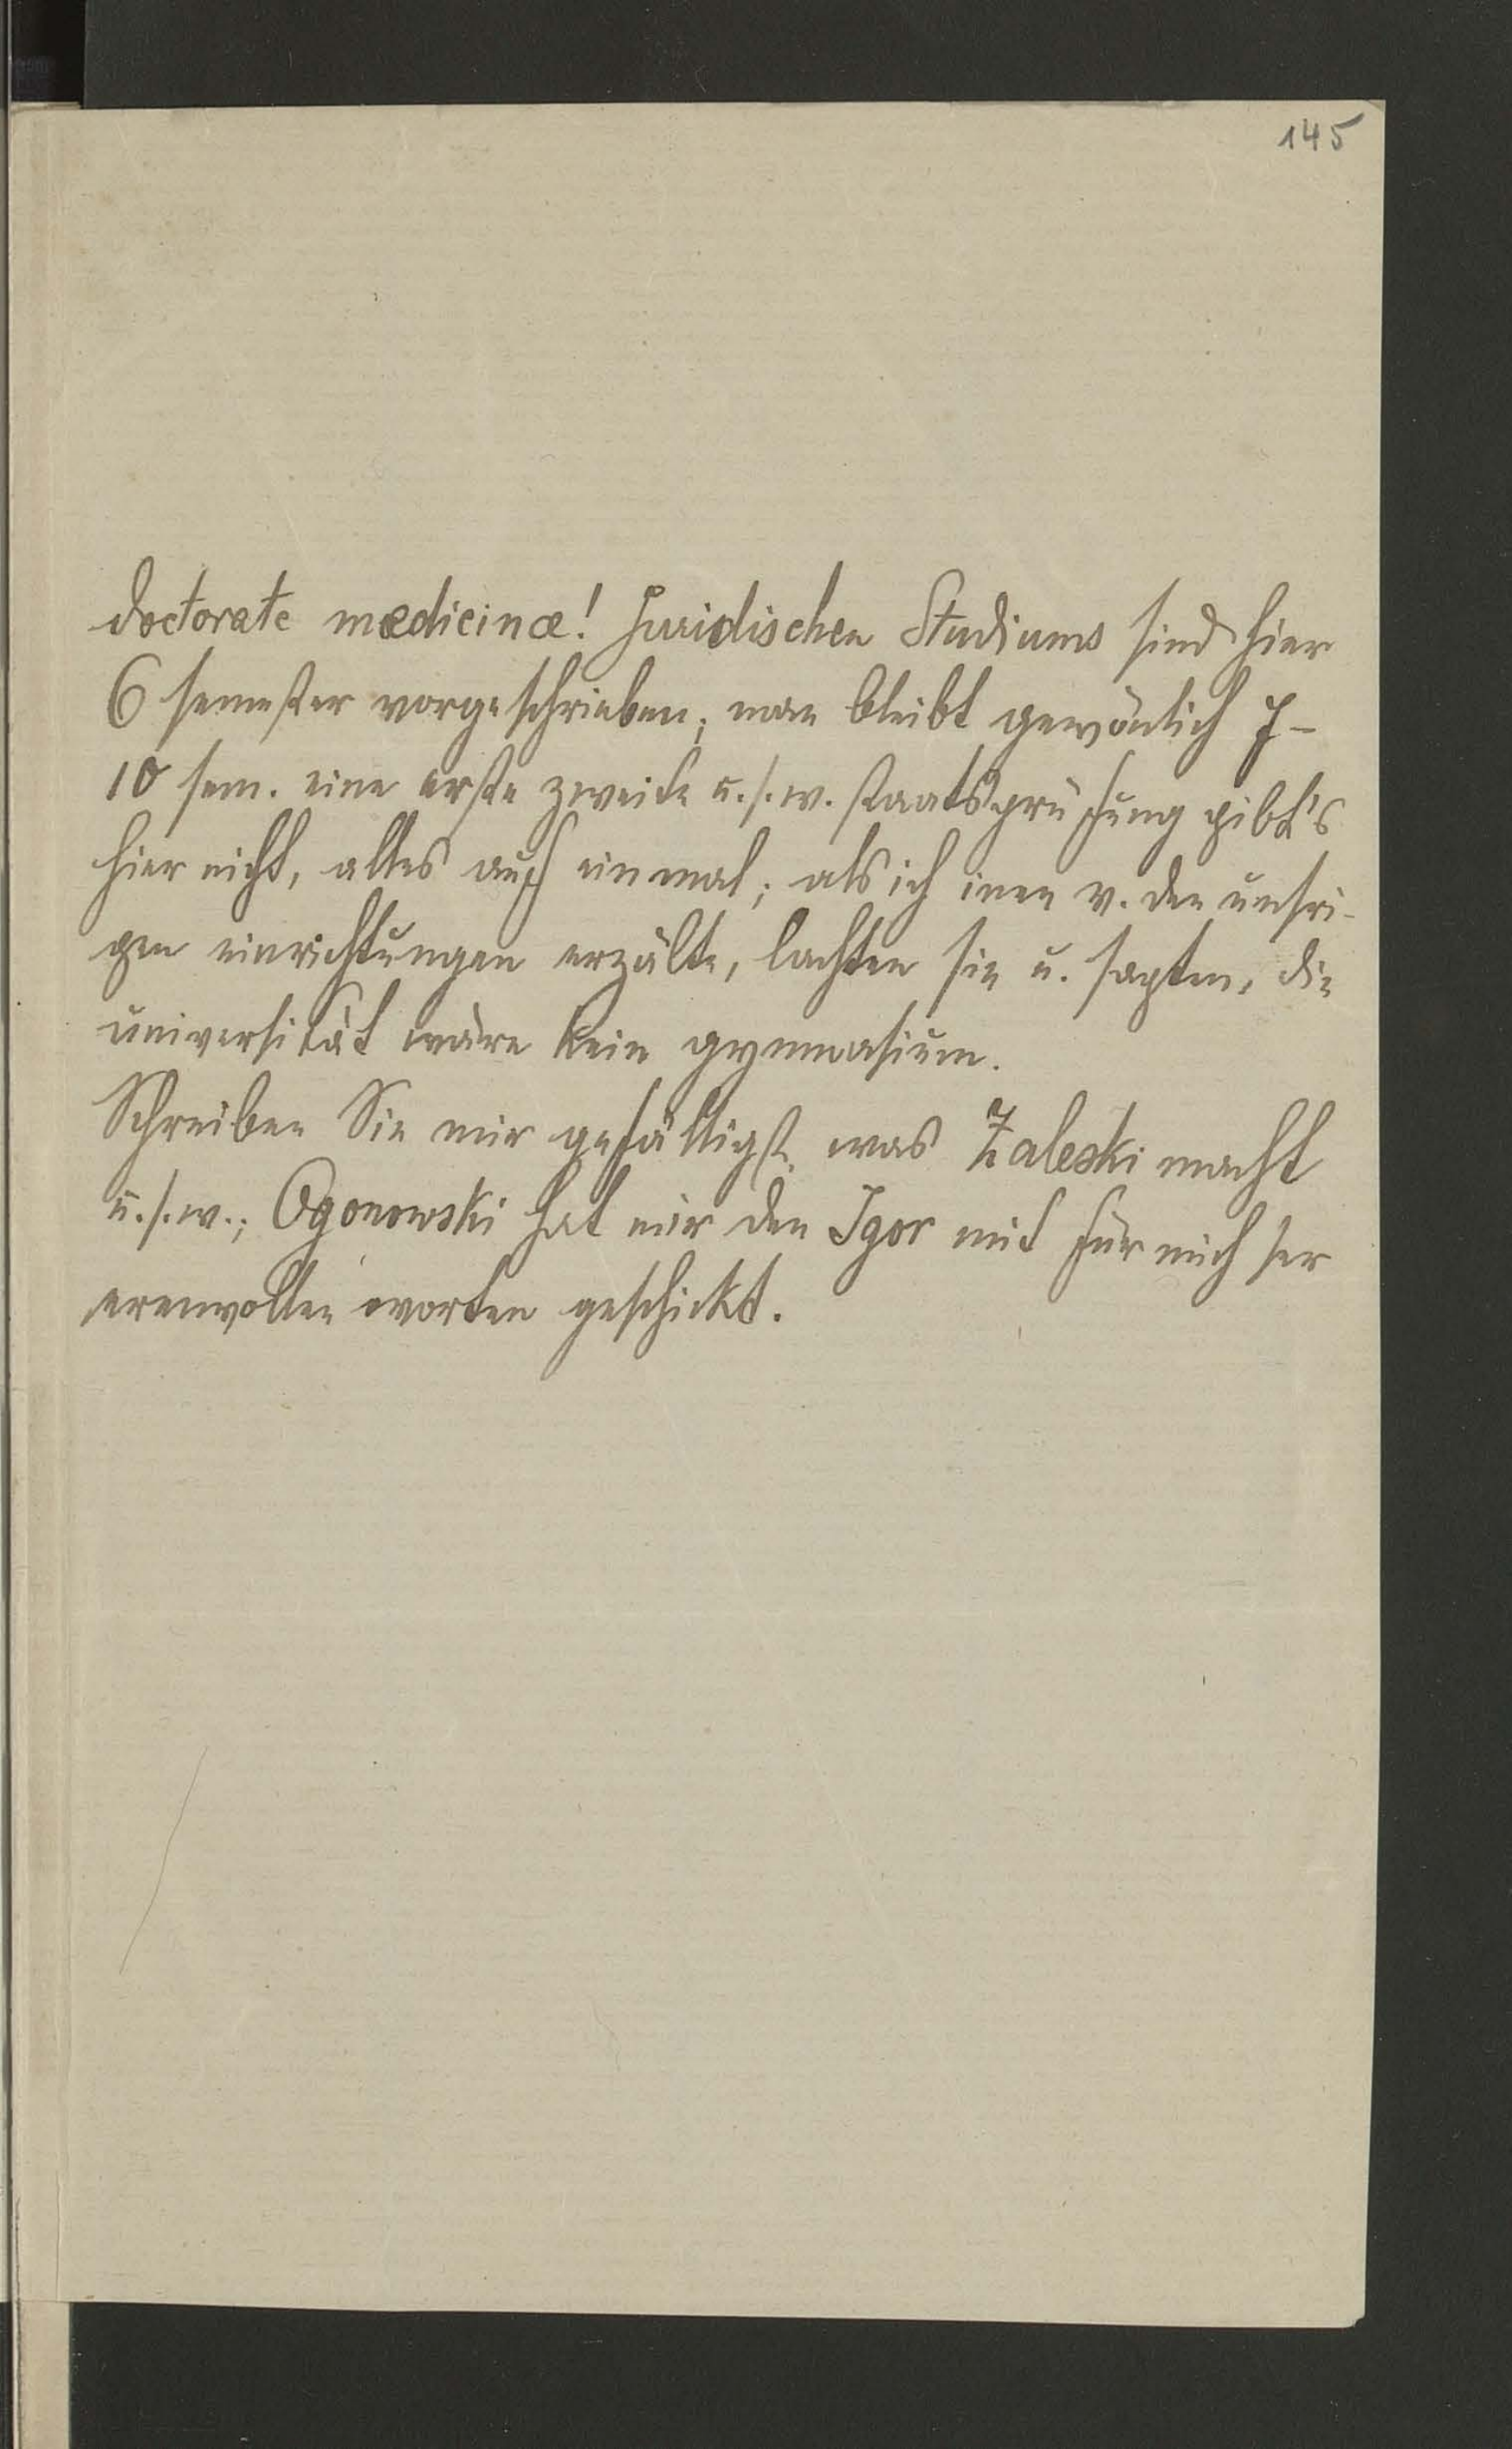 145
doctorate mædicinæ! Juridischen Studiums sind hier
6 semester vorgeschrieben; man bleibt gewönlich 7-
10 sem. eine erste zweite u.s.w. staatsprüfung gibt's
hier nicht, alles auf einmal; als ich inen v. den unsri-
gen einrichtungen erzälte, lachten sie u. sagten, die
universität wäre kein gymnasium.
Schreiben Sie mir gefälligst, was Zaleski macht
u.s.w.; Ogonowski hat mir den Igor mit für mich ser
erenvollen worten geschickt.